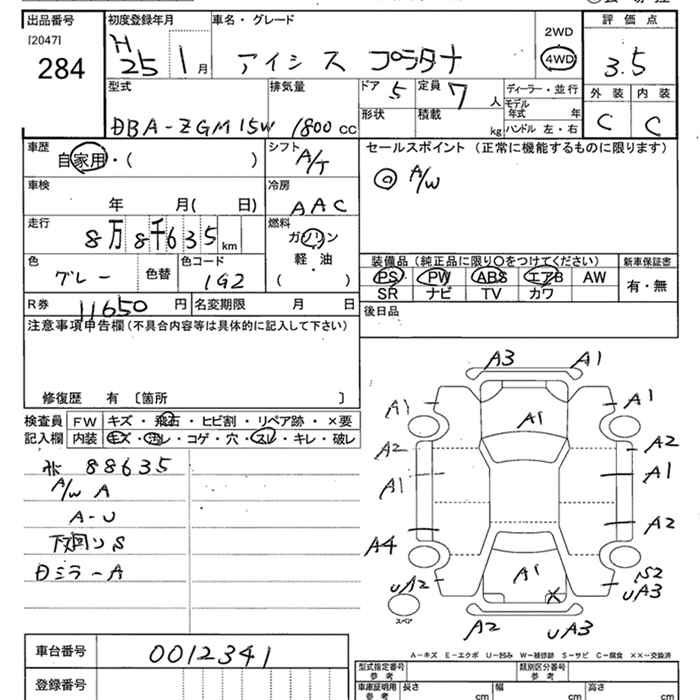 出品番号
[2047]
284
初度登録年月
H
25 1月
車名・グレード
アイシス プラタナ
2WD
4WD
評価点
3.5
外装 内装
C C
型式
DBA-ZGM15W
排気量
1800cc
ドア 5
定員 7人
形状
積載 kg
ディーラー・並行
モデル年式 年
ハンドル 左・右
車歴
自家用・( )
シフト
A/T
セールスポイント (正常に機能するものに限ります)
◎ A/W
車検
年 月( 日)
冷房
AAC
走行
8万8千635km
燃料
ガソリン
軽・油
( )
色
グレー
色替
色コード
1G2
装備品(純正品に限り〇をつけてください)
新車保証書
PS PW ABS エアB AW
SR ナビ TV カワ
有・無
R券 11650円
名変期限 月 日
後日品
注意事項申告欄(不具合内容等は具体的に記入して下さい)
修復歴 有 〔箇所 〕
検査員
記入欄
FW キズ・飛石・ヒビ割・リペア跡・×要
内装 キズ・汚レ・コゲ・穴・スレ・キレ・破レ
88635
A/W A
A-U
下回りS
Dミラ-A
A3 A1
A1 A1 A1
A2 A2
A1 A1
A2
A4
A1
UA2 S2
UA3
X
スペア
A2 UA3
A-キズ E-エクボ U-凹み W-補修跡 S-サビ C-腐食 ××-交換済
車台番号 0012341
登録番号
型式指定番号
参考
類別区分番号
参考
車庫証明用
参考
長さ cm
幅 cm
高さ cm